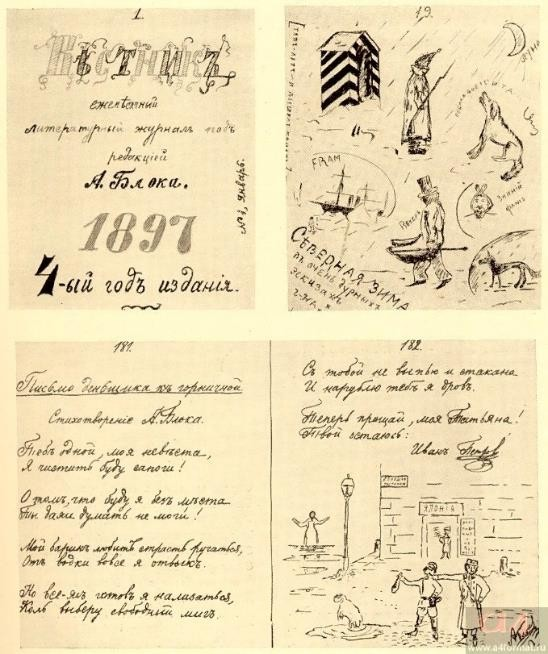 1.
Вѣстникъ
ежемѣсячный
литературный журналъ подъ
редакціей
А. Блока.
№1, январь.
1897
4-ый годъ изданія.
19.
ЛУНА
FRAM
СѢВЕРНАЯ ЗИМА
въ очень дурныхъ
эскизахъ
181.
Письмо деньщика къ горничной
Стихотвореніе А. Блока.
Тебѣ одной, моя невѣста,
Я чистить буду сапоги!
О томъ, что буду я безъ мѣста
Ты даже думать не моги!
Мой баринъ любитъ страсть ругаться,
Отъ водки вовсе я отвыкъ.
Но все-жъ готовъ я нализаться,
Коль выберу свободный мигъ.
182.
Съ тобой не выпью и стакана
И нарублю тебѣ я дровъ.
Теперь прощай, моя Татьяна!
Твой остаюсь:
Иванъ Петровъ
ЯПОНІЯ
www.a4format.ru